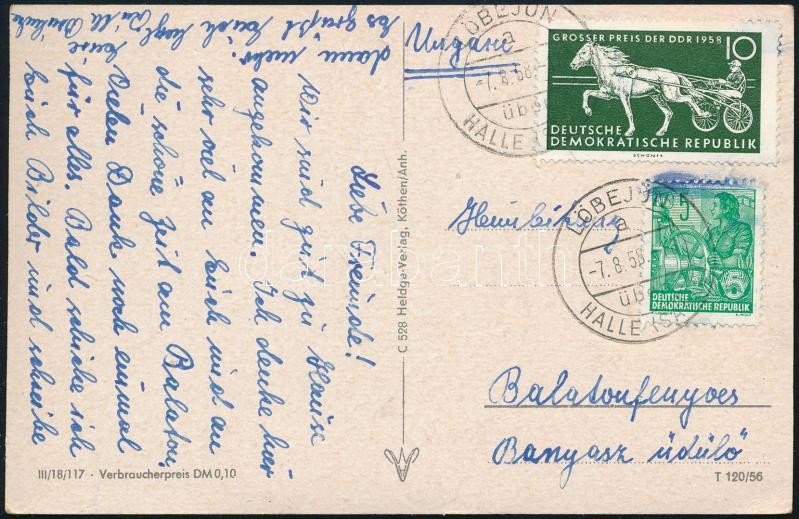 Liebe Freunde!
Wir sind gut zu Hause
angekommen. Ich denke hier
sehr viel an Euch und an
die schöne Zeit am Balaton.
Vielen Dank noch einmal
für alles. Bald schicke ich
Euch Bilder und schreibe
dann mehr.
Es grüßt Euch herzl.
Eure
C 528 Heldge-Verlag, Köthen/Anh.
III/18/117 · Verbraucherpreis DM 0,10
T 120/56
Ungarn
LÖBEJÜN
a
-7.8.58
üb
HALLE (S
GROSSER PREIS DER DDR 1958 10
DEUTSCHE
DEMOKRATISCHE REPUBLIK
SCHÖNER
LÖBEJÜN
a
-7.8.58
üb
HALLE (S
5
DEUTSCHE
DEMOKRATISCHE REPUBLIK
5
Balatonfenyves
Banyasz üdülő
darabanth